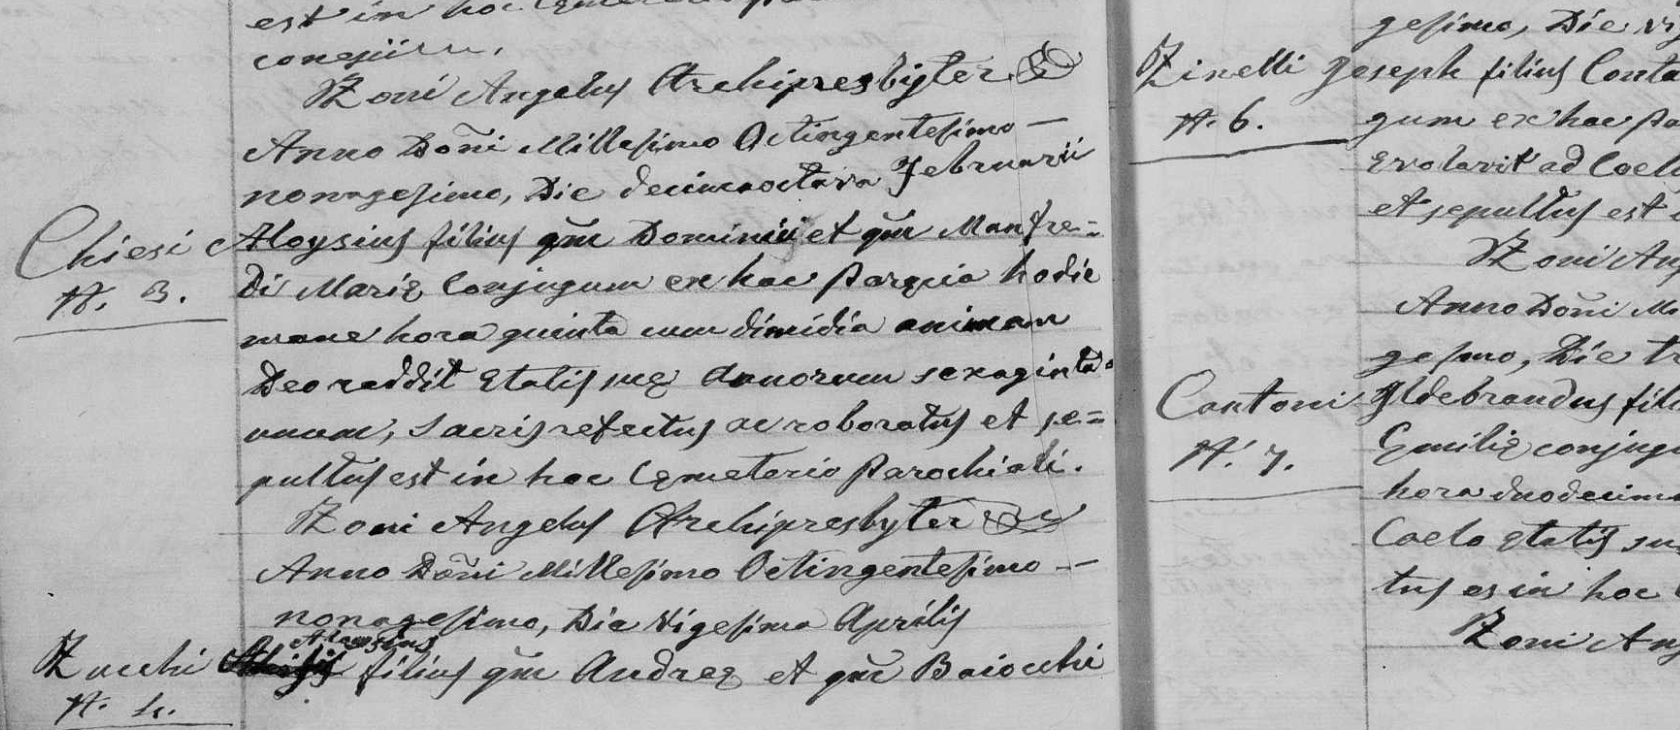 est in hoc Cemeterio
Zoni Angelus Archipresbyter
Anno Dñi Millesimo Octingentesimo —
nonagesimo, Die decimaoctava Februarii
Chiesi Aloysius filius qm̃ Dominici et qm̃ Manfre=
N. 3. di Marię Conjugum ex hac Parqcia hodie
mane hora quinta cum dimidia animam
Deo reddit etatis suę annorum sexaginta
unum, sacris refectus ac roboratus et se=
pultus est in hoc Cęmeterio Parochiali.
Zoni Angelus Archipresbyter
Anno Dñi Millesimo Octingentesimo —
nonagesimo, Die Vigesima Aprilis
Aloysius
Zucchi filius qm̃ Andreę et qm̃ Baiocchi
N. 4.
gesimo, Die vig
Zinelli Joseph filius Conta
N. 6. gum ex hac Pa
evolavit ad Coelu
et sepultus est
Zoni Ang
Anno Dñi Mi
gesimo, Die tr
Cantoni Ildebrandus fili
N. 7. Emilię conjugu
hora duodecima
Coelo etatis su
tus es in hoc
Zoni Ang